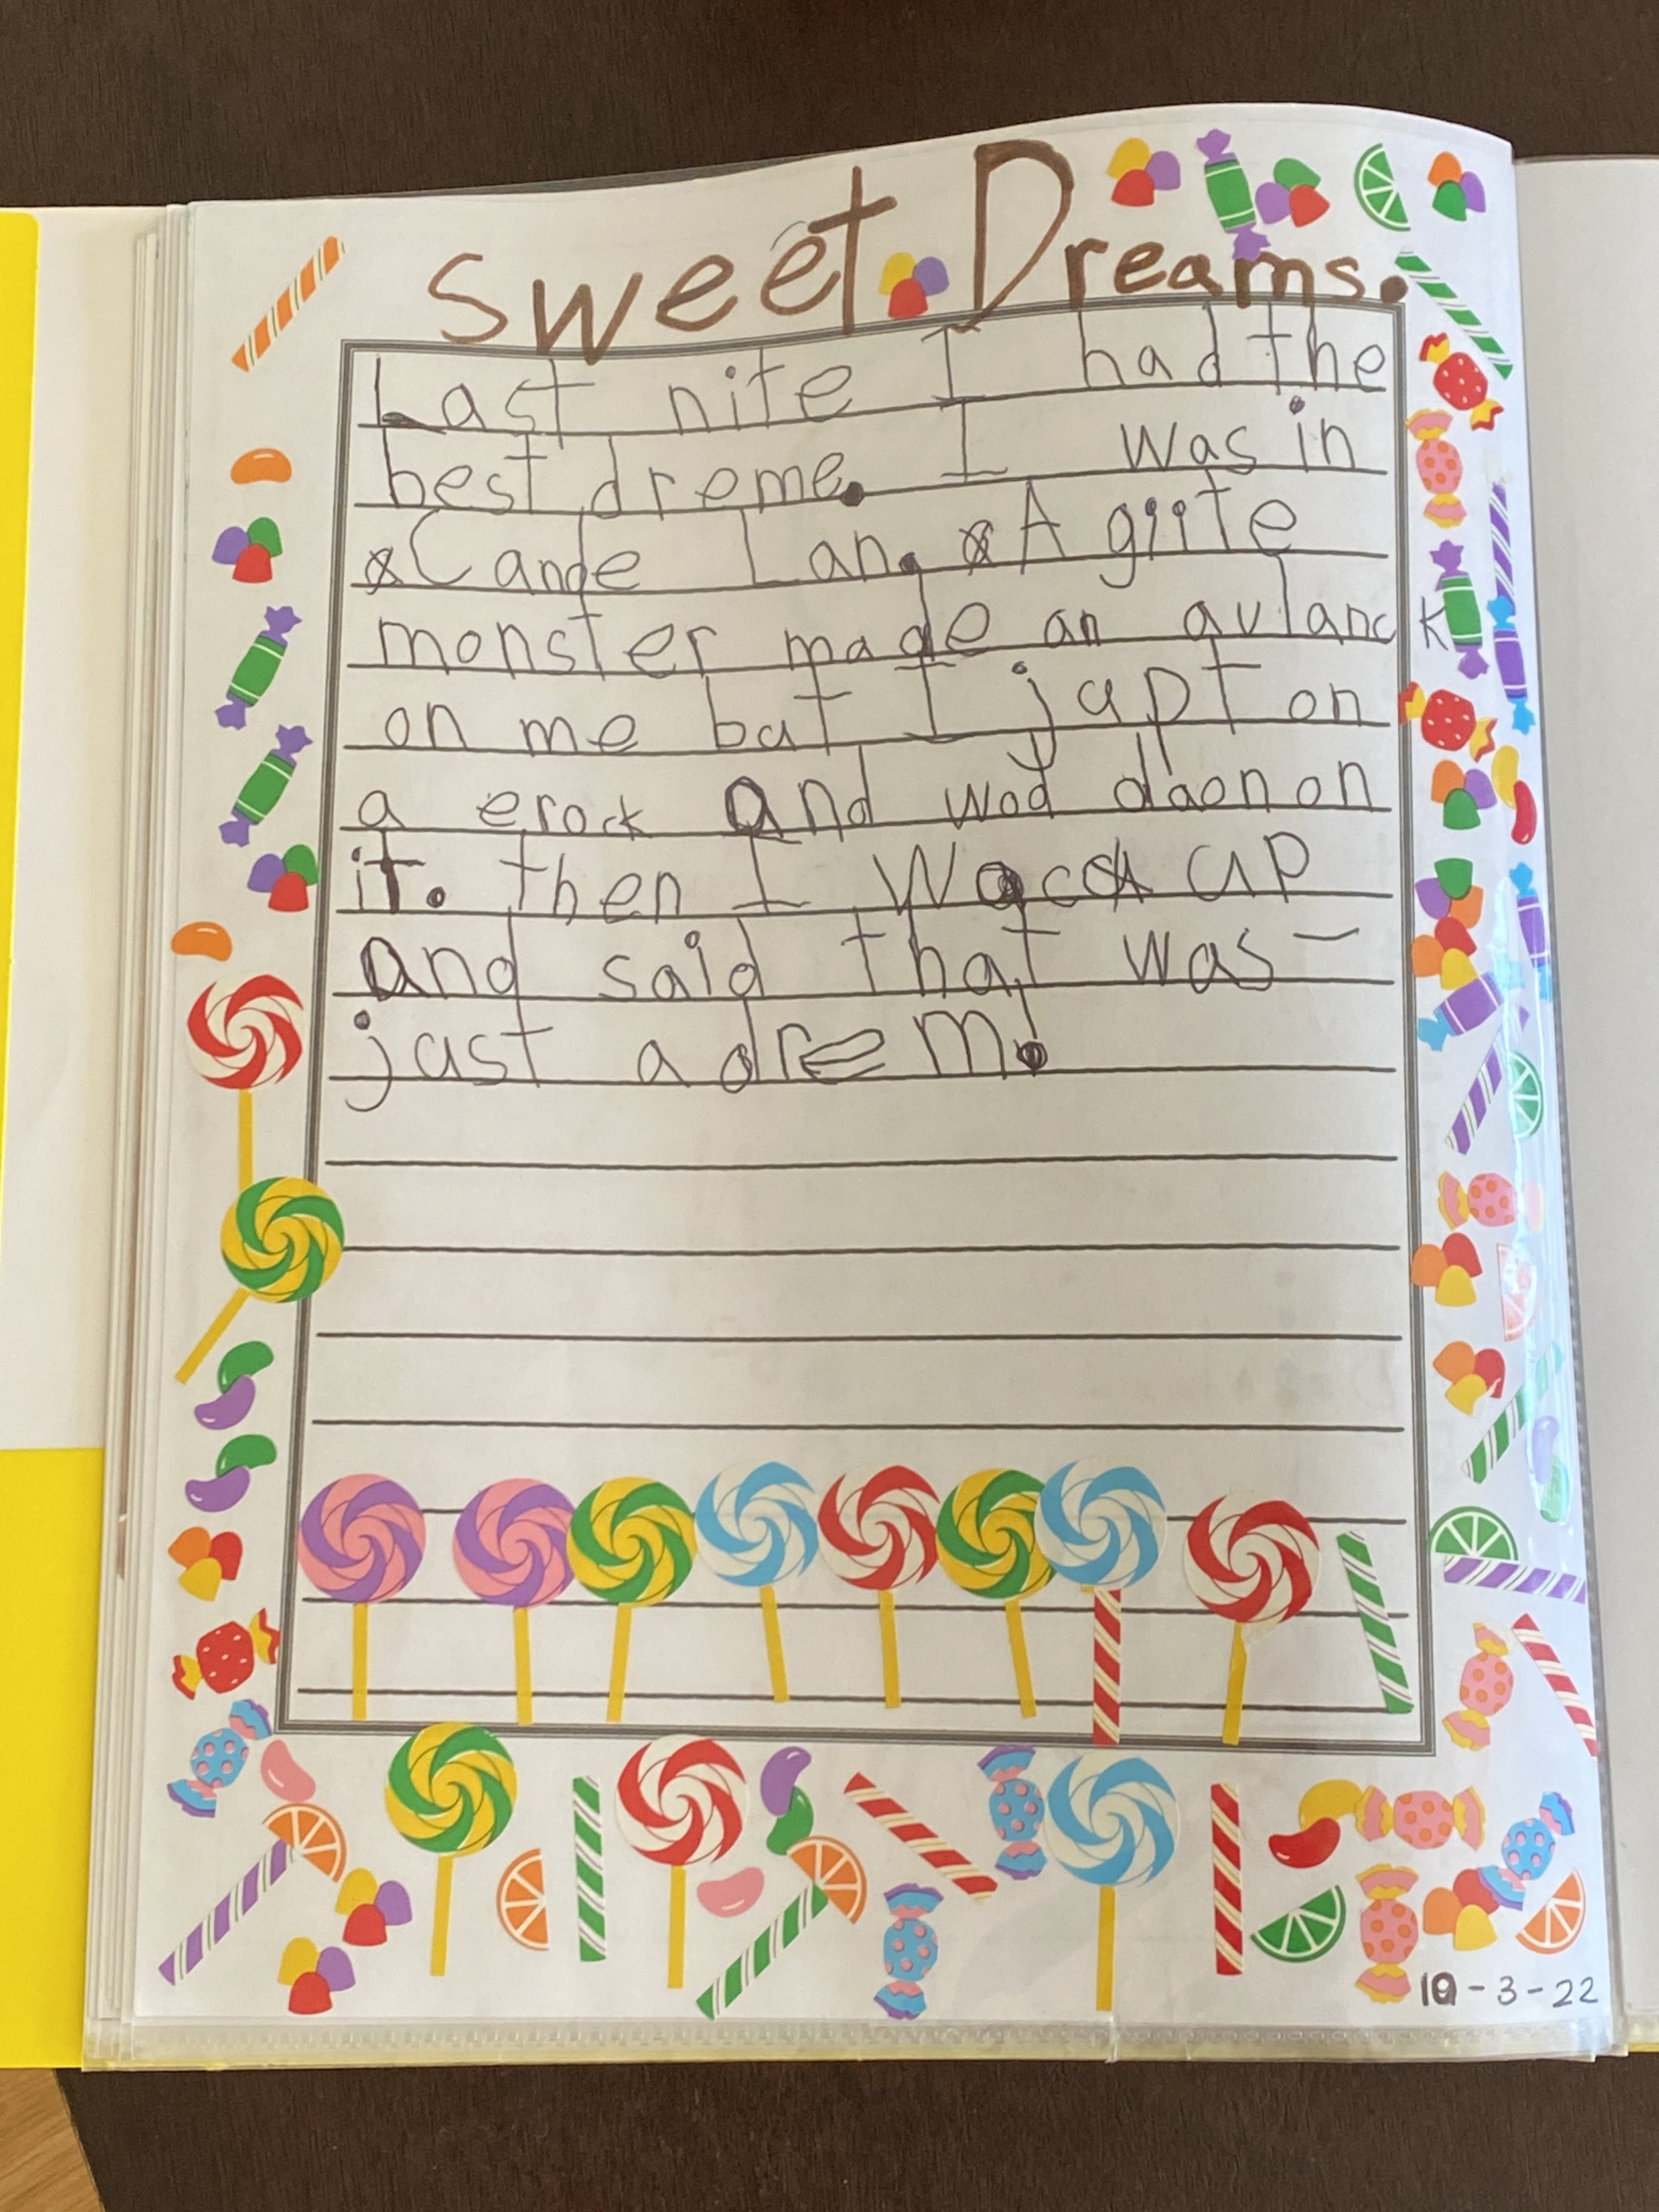 Sweet Dreams.
Last nite I had the
best dreme. I was in
Cande Lan. A giite
monster made an avlanck
on me bat I japt on
a erock and wod daon on
it. then I Wacck up
and said that was
just a drem!
10-3-22